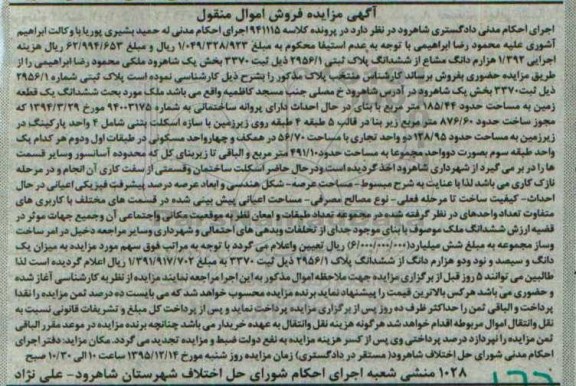 آگهی مزایده فروش اموال منقول
اجرای احکام مدنی دادگستری شاهرود در نظر دارد در پرونده کلاسه 941115اجرای احکام مدنی له حمید بشیری پوربا با وکالت ابراهیم
آشوری علیه محمود رضا ابراهیمی با توجه به عدم استیفا محکوم به مبلغ 1/049/328/923 ریال و مبلغ 62/994/653 ریال هزینه
اجرایی 1/392 هزارم دانگ مشاع از ششدانگ پلاک ثبتی 2956/1 ذیل ثبت 3370 بخش یک شاهرود ملکی محمود رضا ابراهیمی را از
طریق مزایده حضوری بفروش برساند کارشناس منتخب پلاک مذکور را بشرح ذیل کارشناسی نموده است پلاک ثبتی شماره 2956/1
ذیل ثبت3370 بخش یک شاهرود در آدرس شاهرود خ مصلی جنب مسجد کاظمیه واقع می باشد ملک مورد بحث ششدانگ یک قطعه
زمین به مساحت حدود 185/44 متر مربع با بنای در حال احداث دارای پروانه ساختمانی به شماره 94003175 مورخ 1394/3/29 که
مجوز ساخت حدود 876/60 متر مربع زیر بنا در قالب 5 طبقه 4 طبقه روی زیرزمین با سازه اسکلت بتنی شامل 4 واحد پارکینگ در
زیرزمین به مساحت حدود 138/95 دو واحد تجاری با مساحت 56/70 در همکف و چهارواحد مسکونی در طبقات اول ودوم هر کدام یک
واحد طبقه سوم بصورت دوواحد مجموعا به مساحت حدود491/10 متر مربع و الباقی تا زیربنای کل که محدوده آسانسور وسایر قسمت
ها را در بر می گیرد از شهرداری شاهرود اخذ گردیده است ودرحال حاضر اسکلت ساختمان وقسمتی از سفت کاری آن انجام و در مرحله
نازک کاری می باشد لذا با عنایت به شرح مبسوط- مساحت عرصه- شکل هندسی و ابعاد عرصه درصد پیشرفت فیزیکی اعیانی در حال
احداث- کیفیت ساخت تا مرحله فعلی - نوع مصالح مصرفی- مساحت اعیانی پیش بینی شده در قسمت های مختلف با کاربری های
متفاوت تعداد واحدهای در نظر گرفته شده در مجموعه تعداد طبقات و امعان نظر به موقعیت مکانی واجتماعی آن وجمیع جهات موثر در
قضیه ارزش ششدانگ ملک موصوف با بنای موجود جدای از تخلفات وبدهی های احتمالی و شهرداری وسایر مراجعه دخیل در امر ساخت
وساز مجموعه به مبلغ شش میلیارد(6/000/000/000) ریال تعیین واعلام می گردد با توجه به مراتب فوق سهم مورد مزایده به میزان یک
دانگ و سیصد و نود ودو هزارم دانگ از ششدانگ پلاک 2956/1 ذیل ثبت 3370 به مبلغ 1/391/917/702 ریال اعلام گردیده است لذا
طالبین می توانند 5 روز قبل از برگزاری مزایده جهت ملاحظه اموال مذکور به این اجرا مراجعه نمایند مزایده از نظریه کارشناسی آغاز شده
و حضوری می باشد هر کس بالاترین قیمت را پیشنهاد نماید برنده مزایده محسوب خواهد شد که می بایست ده درصد ثمن مزایده را نقدا
پرداخت و الباقی ثمن را حداکثر ظرف ده روز پس از برگزاری مزایده پرداخت نماید و پس از پرداخت کل مبلغ و تشریفات قانونی نسبت به
نقل وانتقال اموال مربوطه اقدام خواهد شد هرگونه هزینه نقل وانتقال به عهده خریدار می باشد چنانچه برنده مزایده در موعد مقرر الباقی
ثمن مزایده را نپردازد درصد پرداختی وی پس از کسر هزینه مزایده به نفع دولت ضبط و مزایده تجدید می گردد. مکان مزایده: دفتر اجرای
احکام مدنی شورای حل اختلاف شاهرود( مستقر در دادگستری) زمان مزایده روز شنبه مورخ 1395/12/14 ساعت 10 الی 10/30 صبح
1028 منشی شعبه اجرای احکام شورای حل اختلاف شهرستان شاهرود- علی نژاد